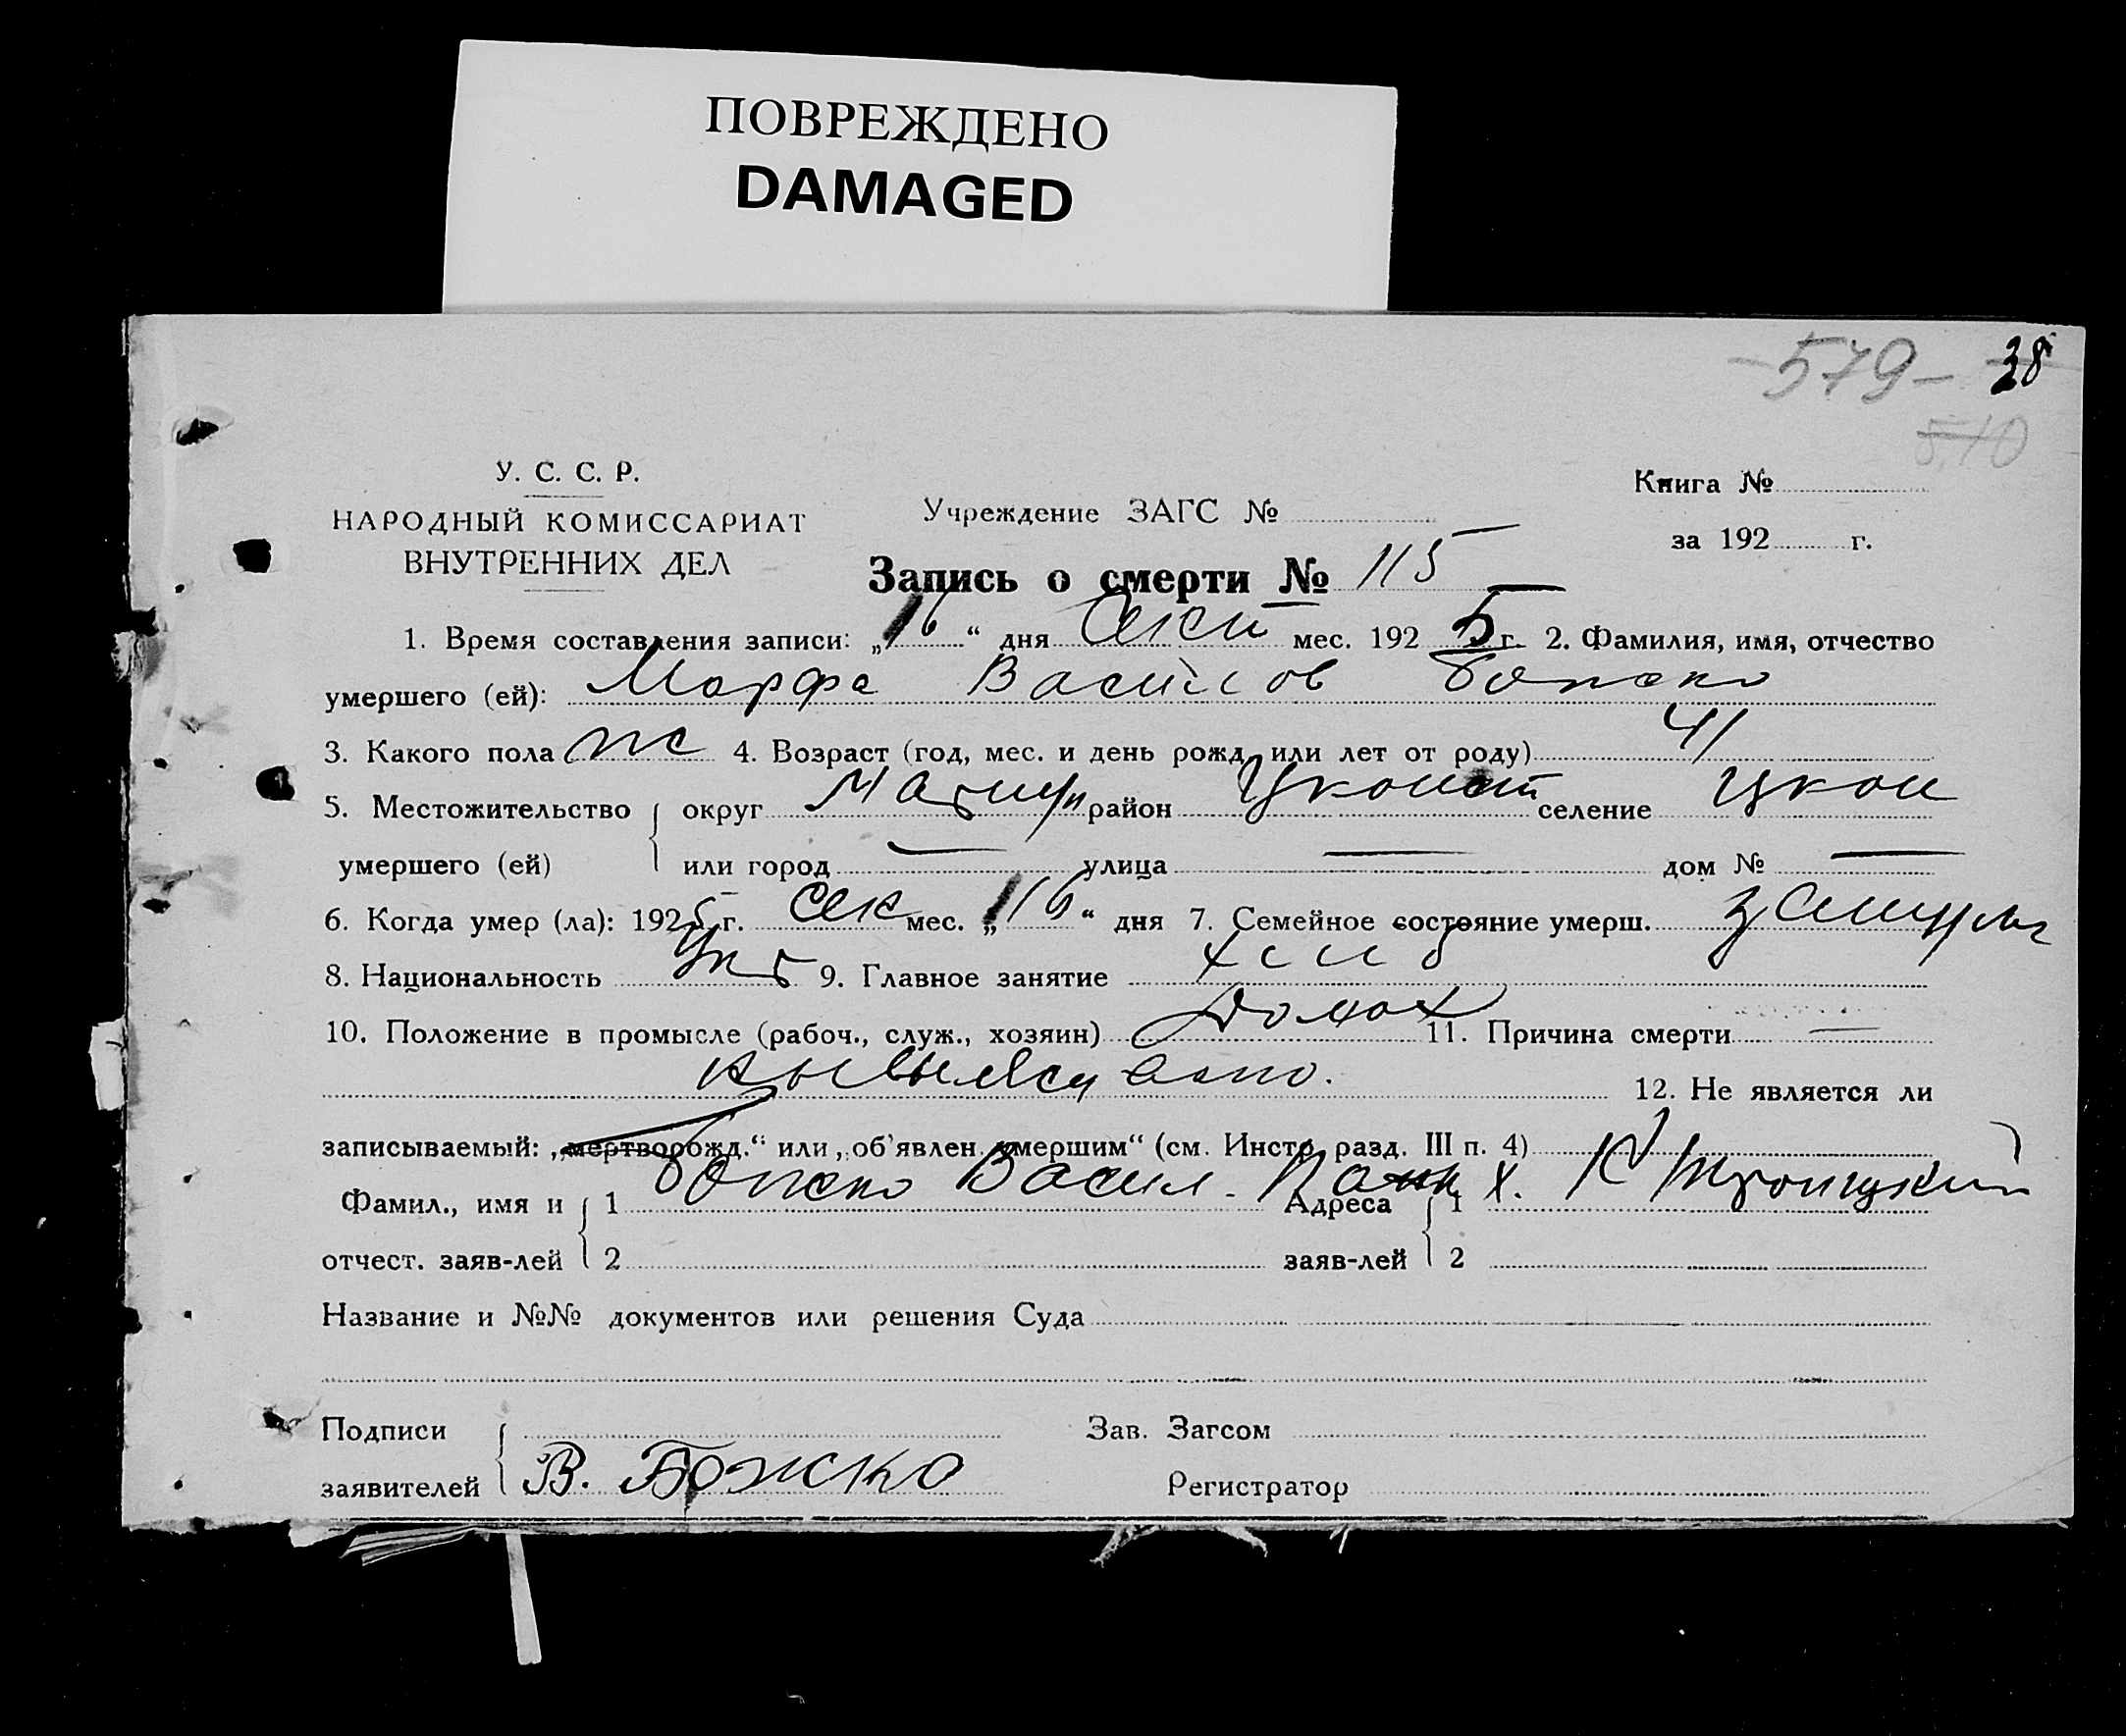 ПОВРЕЖДЕНО
DAMAGED
-579- 38
510
У. С. С. Р.
НАРОДНЫЙ КОМИССАРИАТ
ВНУТРЕННИХ ДЕЛ
Учреждение ЗАГС №
Книга №
за 192 г.
Запись о смерти № 115
1. Время составления записи: „16“ дня Окт мес. 192 5 г. 2. Фамилия, имя, отчество
умершего (ей): Марфа Васил ов Божко
3. Какого пола ж 4. Возраст (год, мес. и день рожд. или лет от роду) 41
5. Местожительство округ район селение
умершего (ей) или город — улица — дом № —
6. Когда умер (ла): 1925 г. Ок мес. „16“ дня 7. Семейное состояние умерш.
8. Национальность Укр 9. Главное занятие хліб
10. Положение в промысле (рабоч., служ., хозяин) Домох 11. Причина смерти —
12. Не является ли
записываемый: „мертворожд.“ или „об'явлен. умершим“ (см. Инстр. разд. III п. 4)
Фамил., имя и 1 Божко Васил. Адреса 1 х. К Троицкий
отчест. заяв-лей 2 заяв-лей 2
Название и №№ документов или решения Суда
Подписи Зав. Загсом
заявителей В. Божко Регистратор